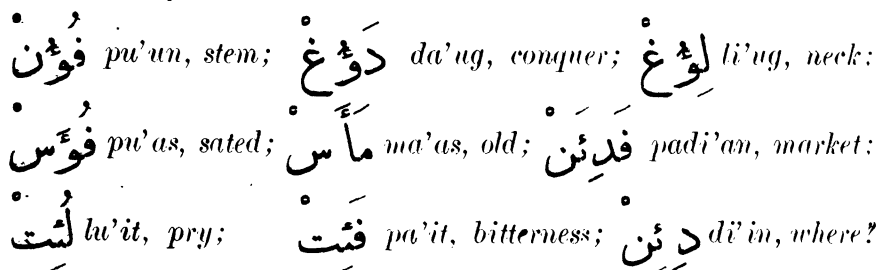 فُؤُنْ pu’un, stem; دَؤُغْ da’ug, conquer; لِؤُغْ li’ug, neck:
فُؤَسْ pu’as, sated; مَأَسْ ma’as, old; فَدِئَنْ padi’an, market:
لُئِتْ lu’it, pry; فَئِتْ pa’it, bitterness; دِئِنْ di’in, where?